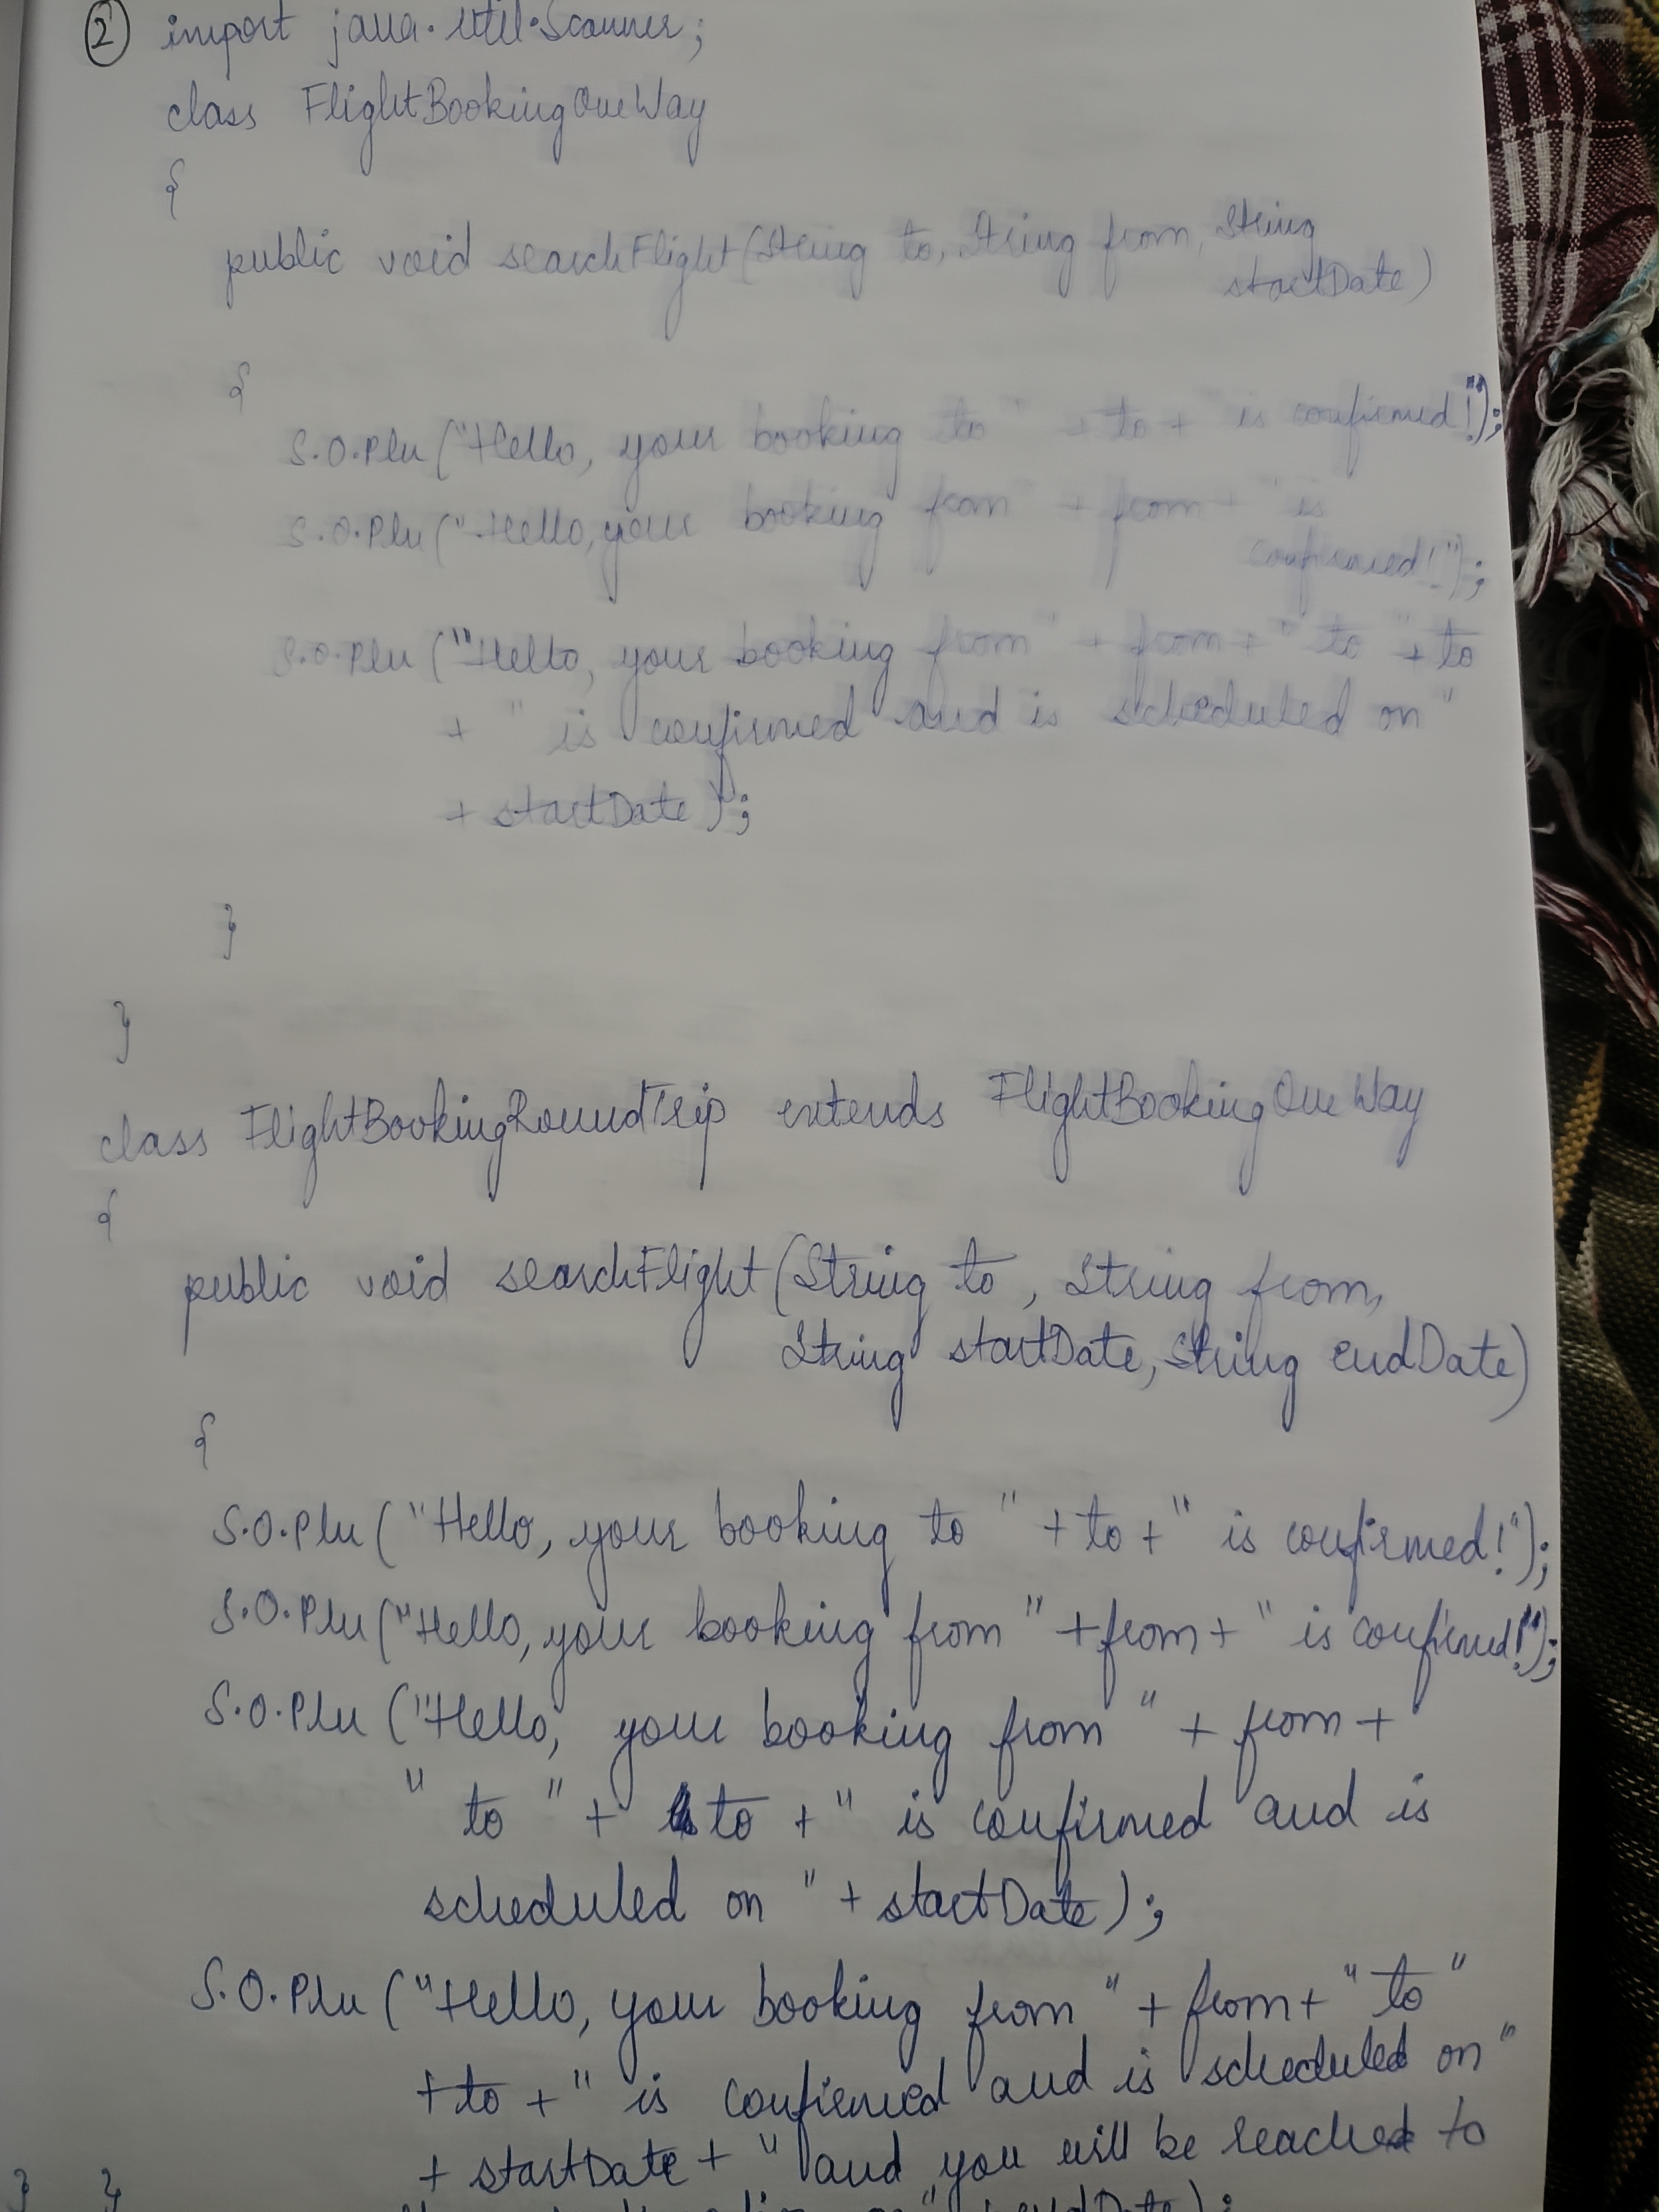 2
import java.util.Scanner;
class FlightBookingOneWay
{
public void searchFlight(String to, String from, String
startDate)
{
S.O.Pln("Hello, your booking to " + to + " is confirmed!");
S.O.Pln("Hello, your booking from " + from + " is
confirmed!");
S.O.Pln("Hello, your booking from " + from + " to " + to
+ " is confirmed and is scheduled on "
+ startDate);
}
}
class FlightBookingRoundTrip extends FlightBookingOneWay
{
public void searchFlight(String to, String from,
String startDate, String endDate)
{
S.O.Pln("Hello, your booking to " + to + " is confirmed!");
S.O.Pln("Hello, your booking from " + from + " is confirmed!");
S.O.Pln("Hello, your booking from " + from +
" to " + to + " is confirmed and is
scheduled on " + startDate);
S.O.Pln("Hello, your booking from " + from + " to "
+ to + " is confirmed and is scheduled on "
+ startDate + " and you will be reached to
} }
" + endDate);